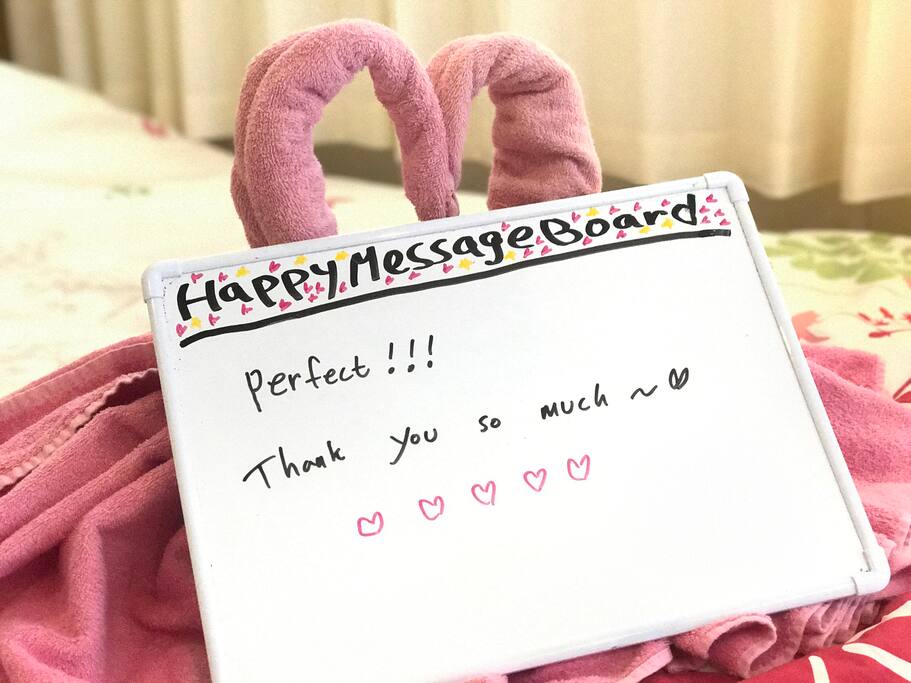 Happy Message Board
Perfect!!!
Thank you so much ~ ♥
♡ ♡ ♡ ♡ ♡